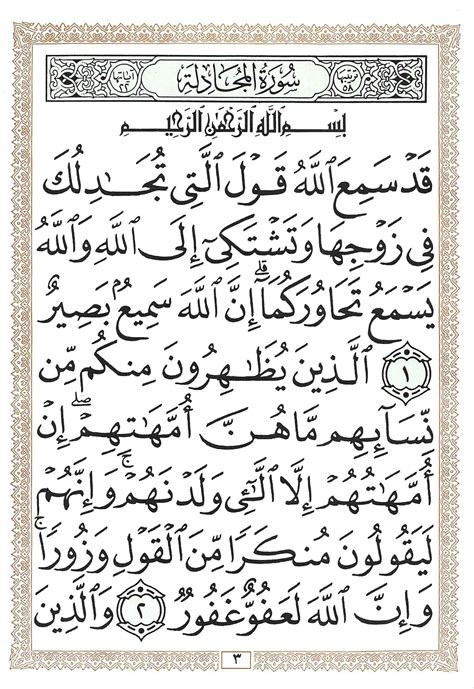 ترتيبها ٥٨ سُورَةُ المُجَادلَة آياتها ٢٢
بِسْمِ ٱللَّهِ ٱلرَّحْمَٰنِ ٱلرَّحِيمِ
قَدْ سَمِعَ ٱللَّهُ قَوْلَ ٱلَّتِى تُجَٰدِلُكَ
فِى زَوْجِهَا وَتَشْتَكِىٓ إِلَى ٱللَّهِ وَٱللَّهُ
يَسْمَعُ تَحَاوُرَكُمَآ ۚ إِنَّ ٱللَّهَ سَمِيعُۢ بَصِيرٌ
١ ٱلَّذِينَ يُظَٰهِرُونَ مِنكُم مِّن
نِّسَآئِهِم مَّا هُنَّ أُمَّهَٰتِهِمْ ۖ إِنْ
أُمَّهَٰتُهُمْ إِلَّا ٱلَّٰٓـِٔى وَلَدْنَهُمْ ۚ وَإِنَّهُمْ
لَيَقُولُونَ مُنكَرًا مِّنَ ٱلْقَوْلِ وَزُورًا ۚ
وَإِنَّ ٱللَّهَ لَعَفُوٌّ غَفُورٌ ٢ وَٱلَّذِينَ
٣